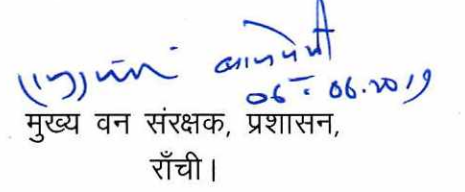 06.06.2019
मुख्य वन संरक्षक, प्रशासन,
राँची।